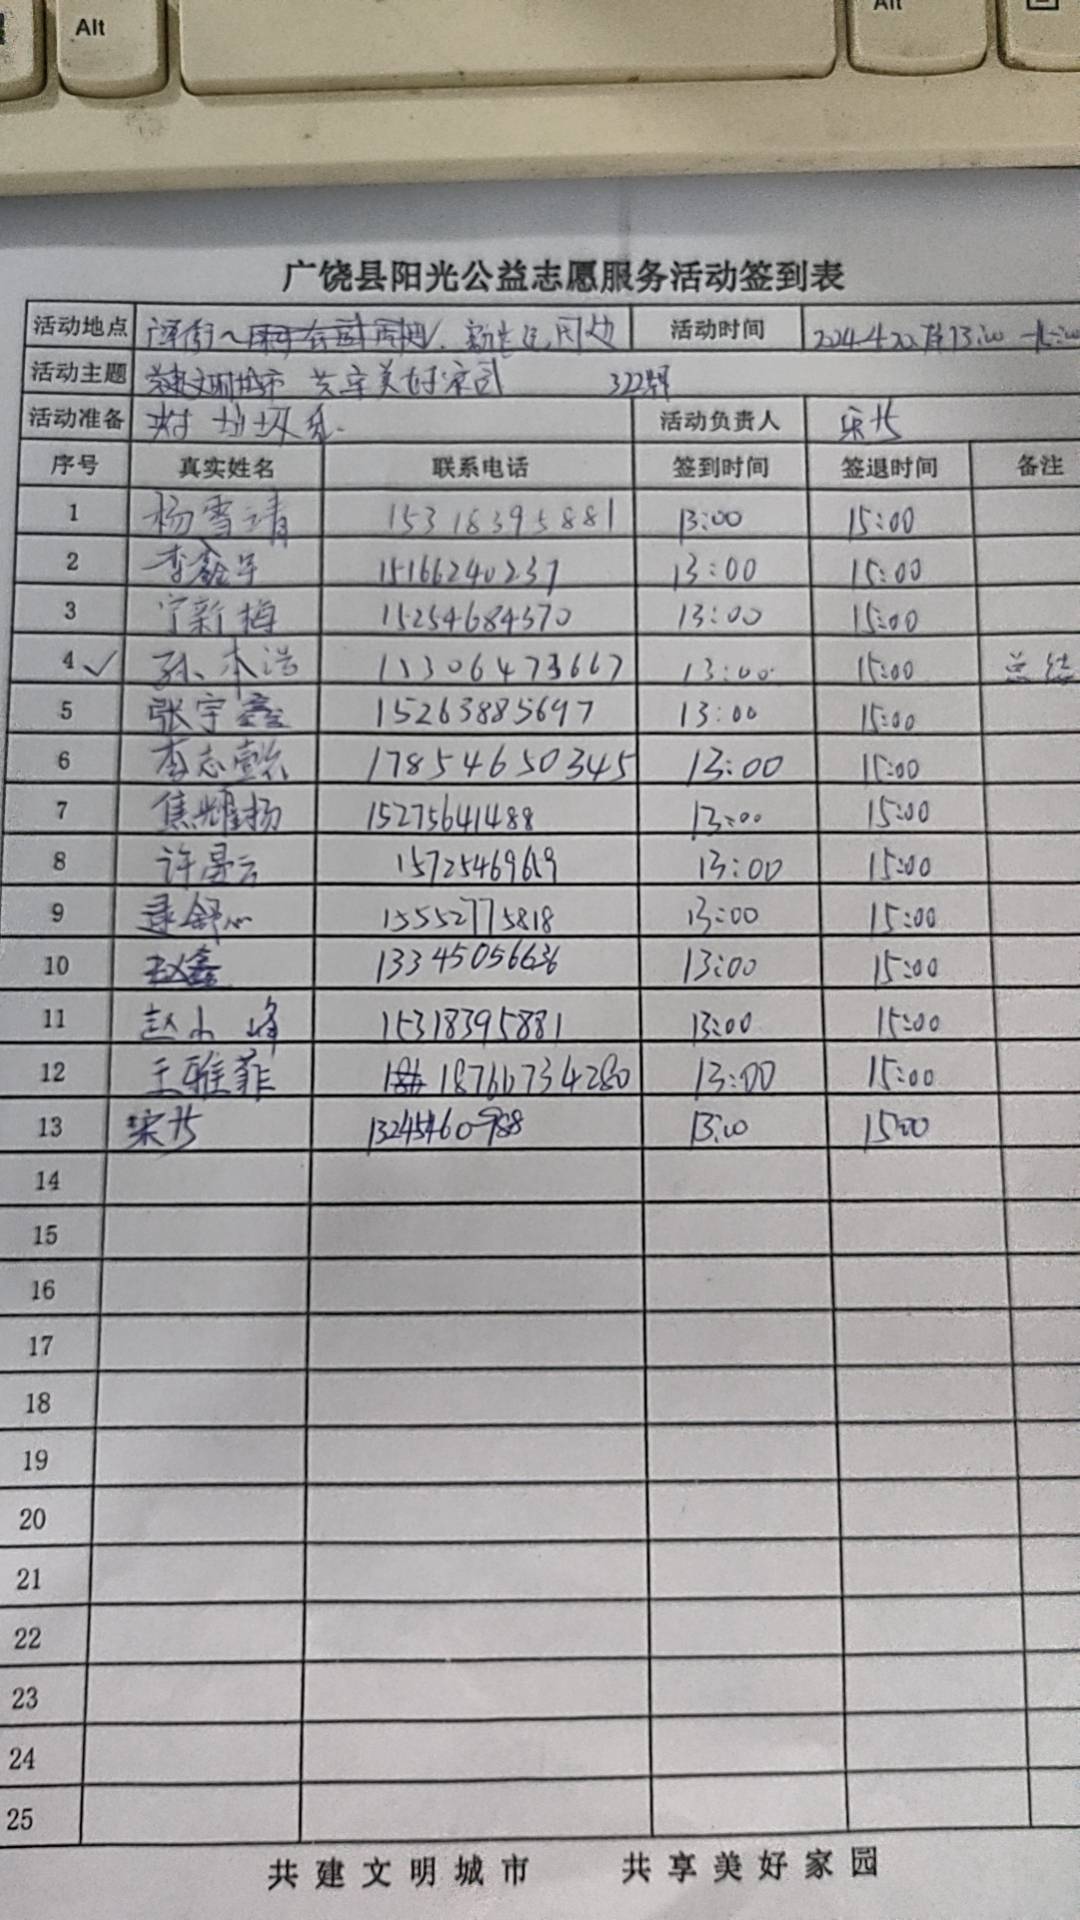 Alt
Alt
广饶县阳光公益志愿服务活动签到表
活动地点 周边 活动时间 2024.4.20. 13:00
活动主题 共建文明城市 共享美好家园 322期
活动准备 垃圾 活动负责人
序号 真实姓名 联系电话 签到时间 签退时间 备注
1 杨雪靖 15318395881 13:00 15:00
2 李鑫宇 15166240237 13:00 15:00
3 宁新梅 15254684570 13:00 15:00
4 ✓ 孙本浩 13:00 15:00 总结
5 张宇鑫 15263885697 13:00 15:00
6 李志懿 17854650345 13:00 15:00
7 焦耀扬 15275641488 13:00 15:00
8 许曼云 13:00 15:00
9 舒心 15552775818 13:00 15:00
10 赵鑫 13:00 15:00
11 赵小峰 15318395881 13:00 15:00
12 王雅菲 18766734280 13:00 15:00
13 13:00 15:00
14
15
16
17
18
19
20
21
22
23
24
25
共建文明城市 共享美好家园